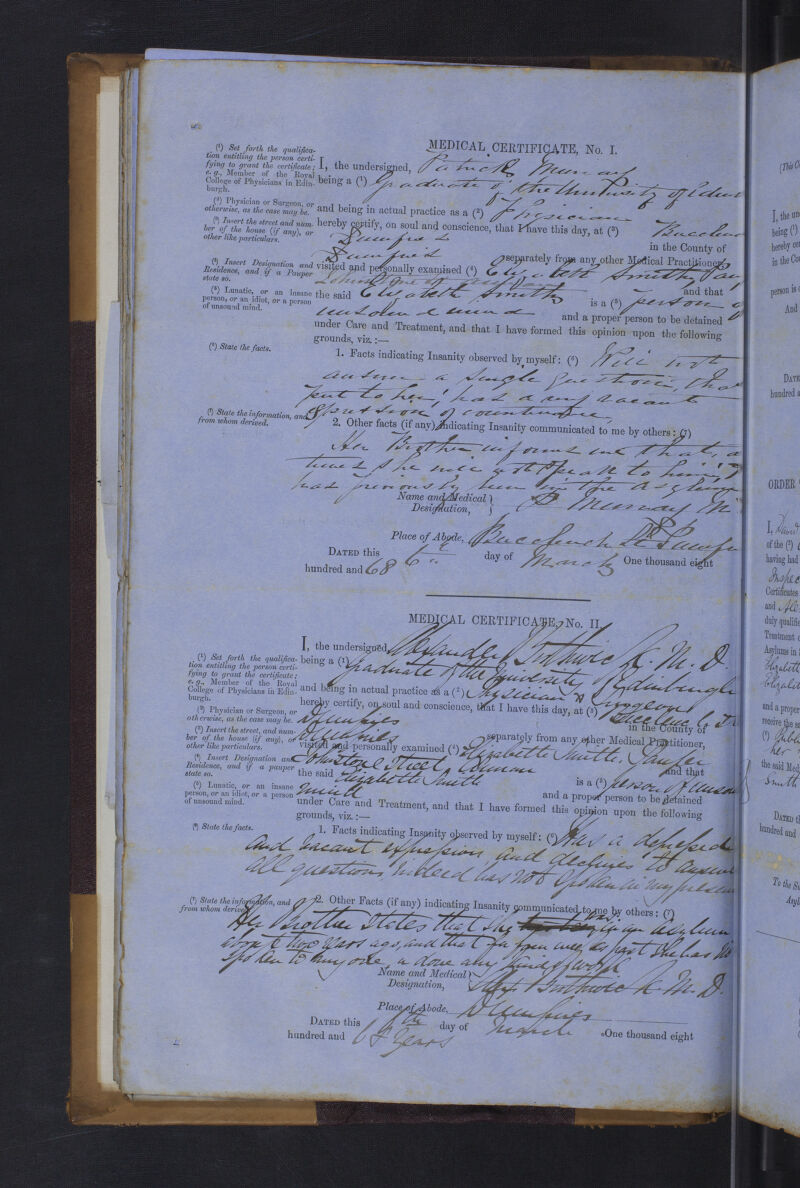 MEDICAL CERTIFICATE, No. I.
(¹) Set forth the qualifica-
tion entitling the person certi-
fying to grant the certificate;
e.g., Member of the Royal
College of Physicians in Edin-
burgh.
I, the undersigned, Patrick Murray
being a (¹) Graduate of the University of Edin
(²) Physician or Surgeon, or
otherwise, as the case may be.
and being in actual practice as a (²) Physician
(³) Insert the street and num-
ber of the house (if any), or
other like particulars.
hereby certify, on soul and conscience, that I have this day, at (³)
Dumfries in the County of
Dumfries separately from any other Medical Practitioner,
(⁴) Insert Designation and
Residence, and if a Pauper
state so.
visited and personally examined (⁴) Elizabeth Smith,
and that
(⁵) Lunatic, or an insane
person, or an idiot, or a person
of unsound mind.
the said Elizabeth Smith is a (⁵) person of
unsound mind and a proper person to be detained
under Care and Treatment, and that I have formed this opinion upon the following
grounds, viz.:—
(⁶) State the facts.
1. Facts indicating Insanity observed by myself: (⁶) Will not
answer a single question that
put to her, has a very vacant
expression of countenance,
(⁷) State the information, and
from whom derived.
2. Other facts (if any) indicating Insanity communicated to me by others: (⁷)
Her Brother informs me that, a
times she will not speak to him,
has previously been in the Asylum
Name and Medical
Designation, P Murray M
Place of Abode, Buccleuch St Dumf
DATED this 6th day of March One thousand eight
hundred and 68
MEDICAL CERTIFICATE, No. II.
(¹) Set forth the qualifica-
tion entitling the person certi-
fying to grant the certificate;
e.g., Member of the Royal
College of Physicians in Edin-
burgh.
I, the undersigned, Alexander Borthwick M. D.
being a (¹) Graduate of the University of Edinburgh
and being in actual practice as a (²) Physician & Surgeon
(²) Physician or Surgeon, or
otherwise, as the case may be.
hereby certify, on soul and conscience, that I have this day, at (³)
(³) Insert the street, and num-
ber of the house (if any), or
other like particulars.
Dumfries in the County of
Dumfries separately from any other Medical Practitioner,
(⁴) Insert Designation and
Residence, and if a pauper
state so.
visited and personally examined (⁴) Elizabeth Smith. Pauper
Johnstone Street Annan and that
(⁵) Lunatic, or an insane
person, or an idiot, or a person
of unsound mind.
the said Elizabeth Smith is a (⁵) person of unsou
mind and a proper person to be detained
under Care and Treatment, and that I have formed this opinion upon the following
grounds, viz.:—
(⁶) State the facts.
1. Facts indicating Insanity observed by myself: (⁶) Has a depressed
and vacant expression, and declines to answer
all questions indeed has not spoken in my presen
(⁷) State the information, and
from whom derived.
2. Other Facts (if any) indicating Insanity communicated to me by others: (⁷)
Her Brother States that she was in an Asylum
years ago, and that for weeks past she has no
spoken to anyone, or done any kind of work
Name and Medical
Designation, Alex Borthwick M. D.
Place of Abode, Dumfries
DATED this 6th day of March One thousand eight
hundred and 68 years
(This C
I, the un
being (¹)
hereby ce
in the Co
person is
And
DATE
hundred a
ORDER
I, David
of the (²)
having had
Inspec
Certificates
and Ale
duly qualifie
Treatment
Asylums in
Elizabeth
Elizabet
and a proper
receive the s
the said Med
Smith
DATED t
hundred and
To the S
Asyl